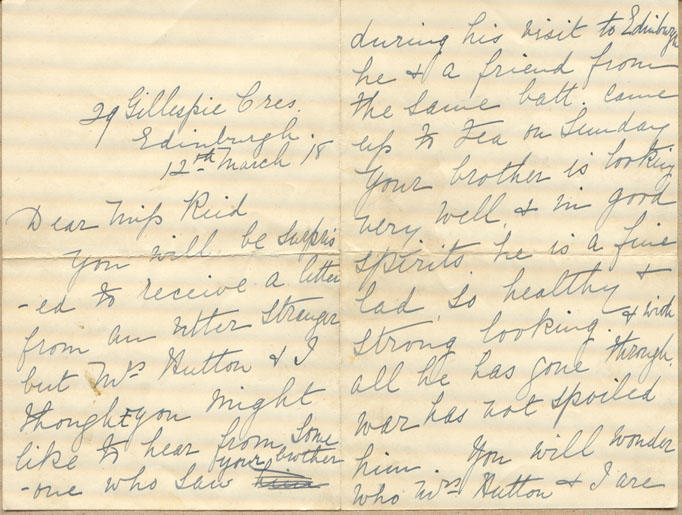 29 Gillespie Cres.
Edinburgh.
12th March 18
Dear Miss Reid
You will be surpris
-ed to receive a letter
from an utter stranger
but Mrs Hutton & I
thought you might
like to hear from some
-one who saw him your brother
during his visit to Edinburgh
he & a friend from
the same batt. came
up to tea on Sunday
Your brother is looking
very well & in good
spirits he is a fine
lad, so healthy &
strong looking. & with
all he has gone through.
war has not spoiled
him. You will wonder
who Mrs Hutton & I are